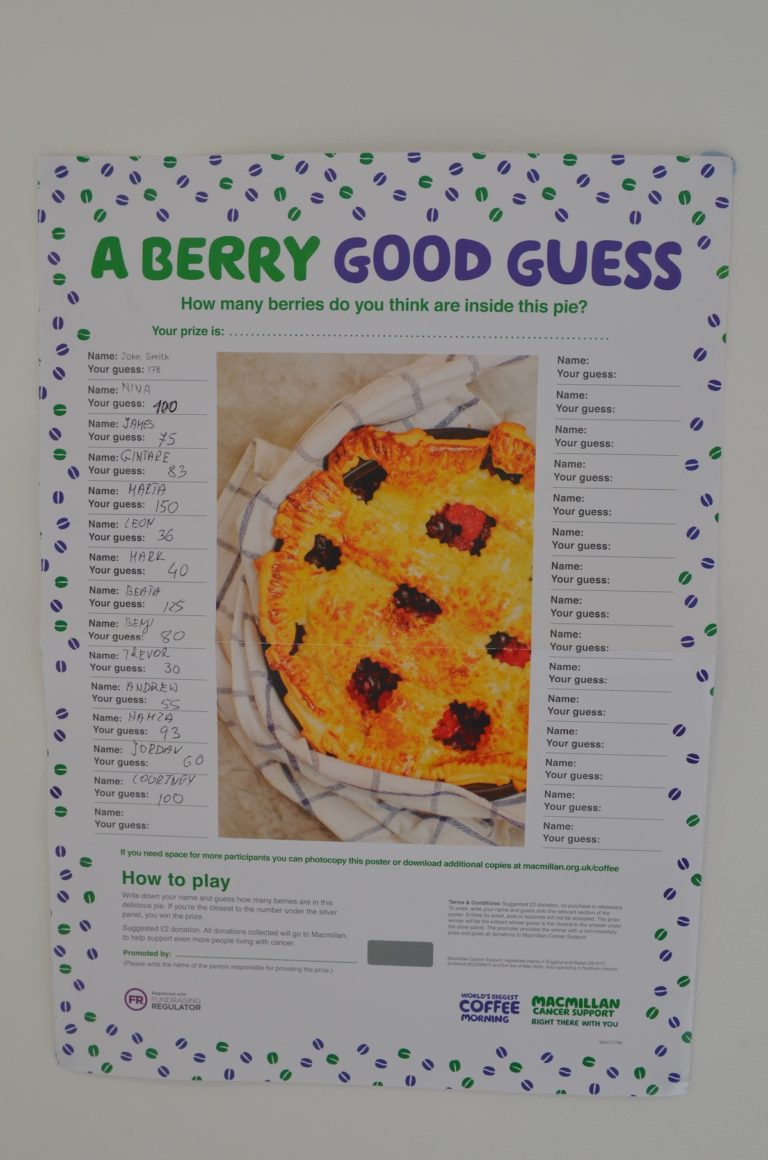 A BERRY GOOD GUESS
How many berries do you think are inside this pie?
Your prize is:
Name: John Smith
Your guess: 175
Name: NINA
Your guess: 100
Name: JAMES
Your guess: 75
Name: GINTARE
Your guess: 83
Name: MARTA
Your guess: 150
Name: LEON
Your guess: 36
Name: MARK
Your guess: 40
Name: BEATA
Your guess: 125
Name: BENJ
Your guess: 80
Name: TREVOR
Your guess: 30
Name: ANDREW
Your guess: 55
Name: HAMZA
Your guess: 93
Name: JORDAN
Your guess: 60
Name: COURTNEY
Your guess: 100
Name:
Your guess:
Name:
Your guess:
Name:
Your guess:
Name:
Your guess:
Name:
Your guess:
Name:
Your guess:
Name:
Your guess:
Name:
Your guess:
Name:
Your guess:
Name:
Your guess:
Name:
Your guess:
Name:
Your guess:
Name:
Your guess:
Name:
Your guess:
Name:
Your guess:
Name:
Your guess:
If you need space for more participants you can photocopy this poster or download additional copies at macmillan.org.uk/coffee
How to play
Write down your name and guess how many berries are in this
delicious pie. If you're the closest to the number under the silver
panel, you win the prize.
Suggested £2 donation. All donations collected will go to Macmillan,
to help support even more people living with cancer.
Promoted by:
(Please write the name of the person responsible for providing the prize.)
Terms & Conditions: Suggested £2 donation, no purchase is necessary.
To enter, write your name and guess onto the relevant section of the
poster. Entries by email, post or facsimile will not be accepted. The prize
winner will be the entrant whose guess is the closest to the answer under
the silver panel. The promoter provides the winner with a non-monetary
prize and gives all donations to Macmillan Cancer Support.
Macmillan Cancer Support, registered charity in England and Wales (261017),
Scotland (SC039907) and the Isle of Man (604). Also operating in Northern Ireland.
FR
Registered with
FUNDRAISING
REGULATOR
WORLD'S BIGGEST
COFFEE
MORNING
MACMILLAN
CANCER SUPPORT
RIGHT THERE WITH YOU